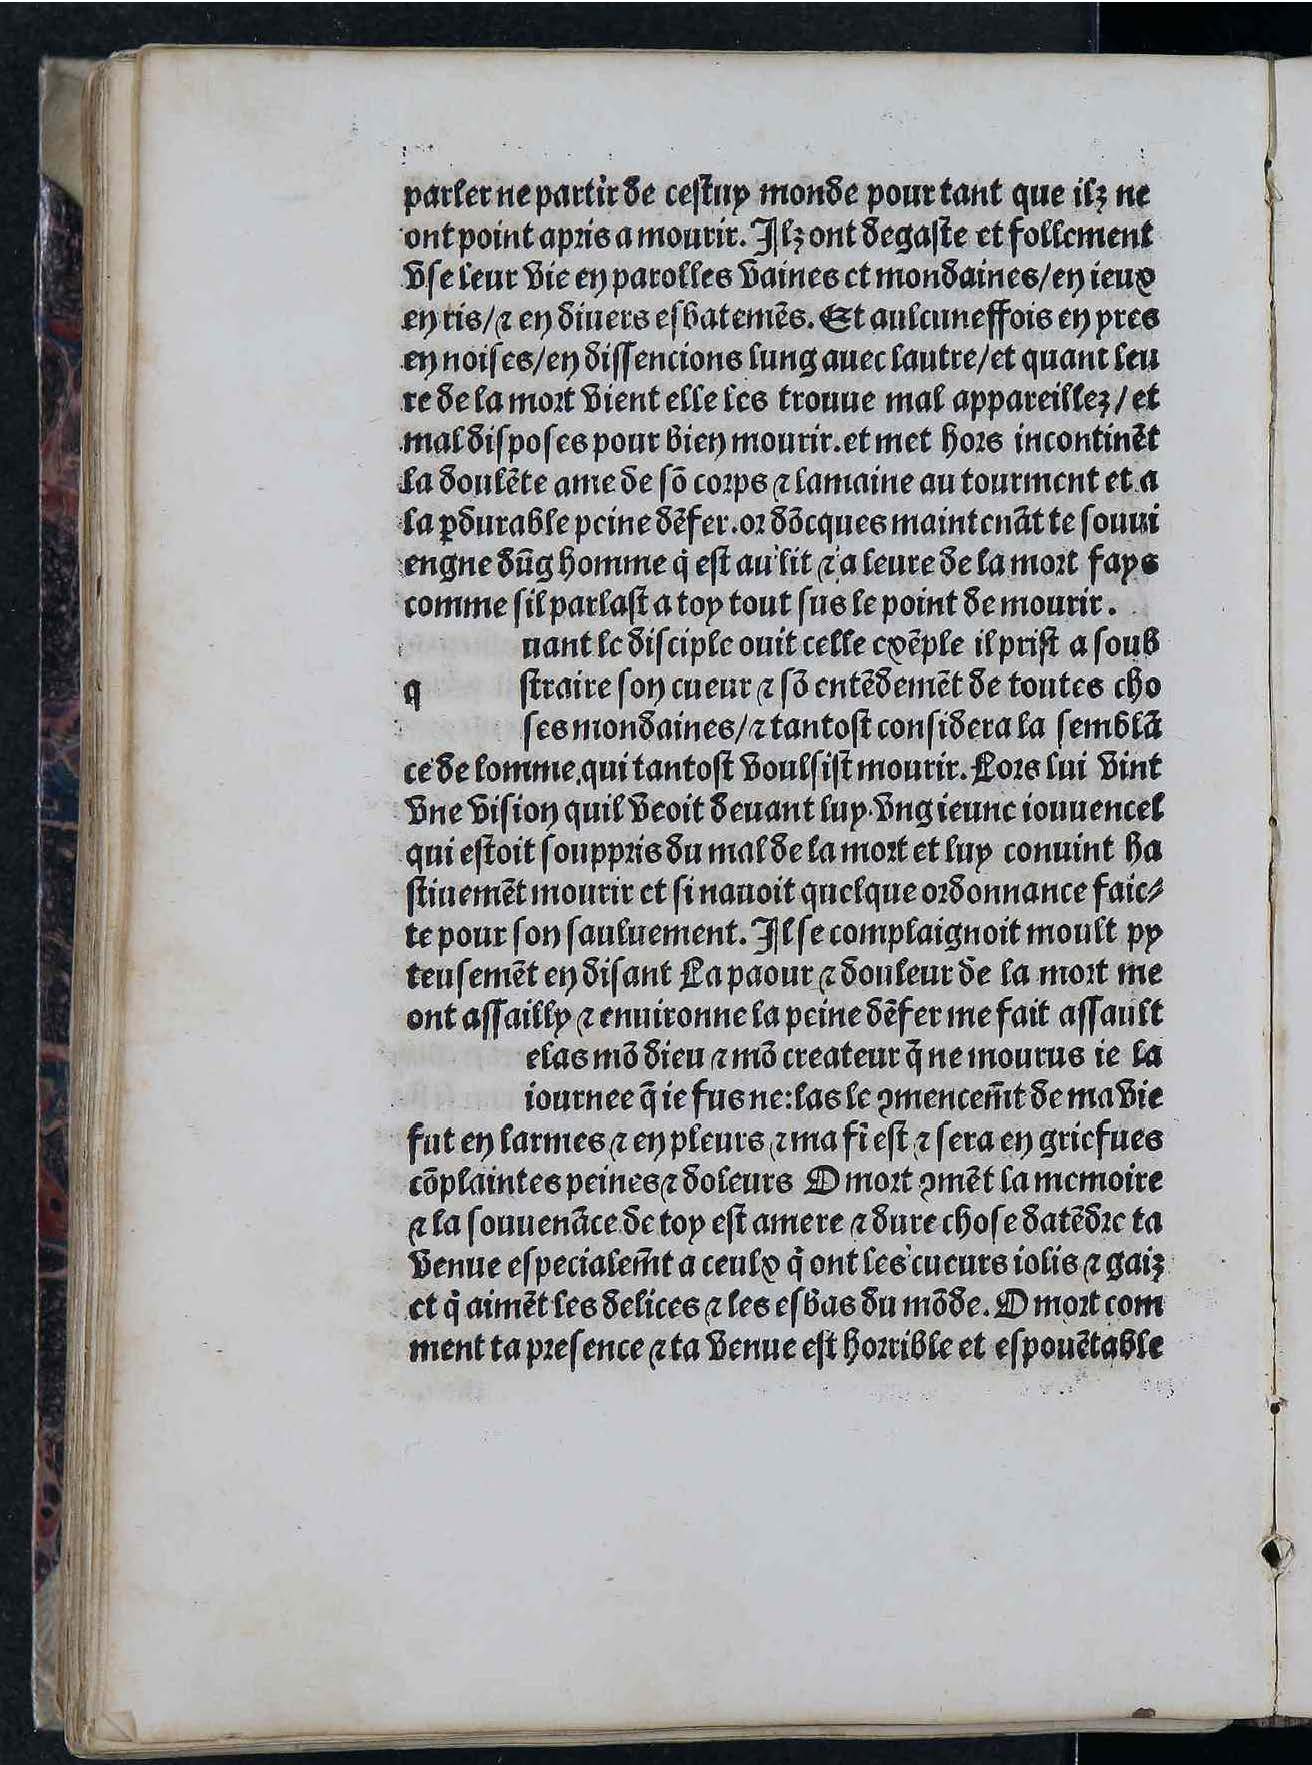 parler ne partir de cestuy monde pour tant que ilz ne
ont point apris a mourir. Ilz ont degaste et follement
vse leur vie en parolles vaines et mondaines/en ieux
en ris/⁊ en diuers esbatemẽs. Et aulcuneffois en yres
en noises/en dissencions lung auec lautre/et quant leu
re de la mort vient elle les trouue mal appareillez/et
mal disposes pour bien mourir.et met hors incontinẽt
la doulẽte ame de sõ corps ⁊ lamaine au tourment et a
la ꝑdurable peine dẽfer.or dõcques maintenãt te souui
engne dũg homme q̃ est au lit ⁊ a leure de la mort fays
comme sil parlast a toy tout sus le point de mourir.
uant le disciple ouit celle exẽple il prist a soub
q straire son cueur ⁊ sõ entẽdemẽt de toutes cho
ses mondaines/⁊ tantost considera la semblã
ce de lomme qui tantost voulsist mourir. Lors lui vint
vne vision quil veoit deuant luy.vng ieune iouuencel
qui estoit souppris du mal de la mort et luy conuint ha
stiuemẽt mourir et si nauoit quelque ordonnance faic⸗
te pour son sauluement. Il se complaignoit moult py
teusemẽt en disant La paour ⁊ douleur de la mort me
ont assailly ⁊ enuironne la peine dẽfer me fait assault
elas mõ dieu ⁊ mõ createur q̃ ne mourus ie la
iournee q̃ ie fus ne:las le ꝯmencem̃t de ma vie
fut en larmes ⁊ en pleurs ⁊ ma fĩ est ⁊ sera en griefues
cõplaintes peines ⁊ doleurs O mort ꝯmẽt la memoire
⁊ la souuenãce de toy est amere ⁊ dure chose datẽdre ta
venue especialem̃t a ceulx q̃ ont les cueurs iolis ⁊ gaiz
et q̃ aimẽt les delices ⁊ les esbas du mõde. O mort com
ment ta presence ⁊ ta venue est horrible et espouẽtable